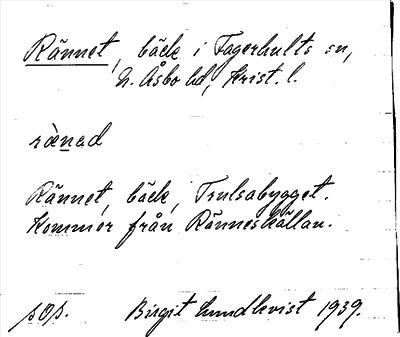 Rännet, bäck i Fagerhults sn,
N. Åsbo hd, Krist. l.
rànad
Rännet, bäck, Trulsabygget.
Kommer från Ränneskällan.
sOp. Birgit Lundkvist 1939.